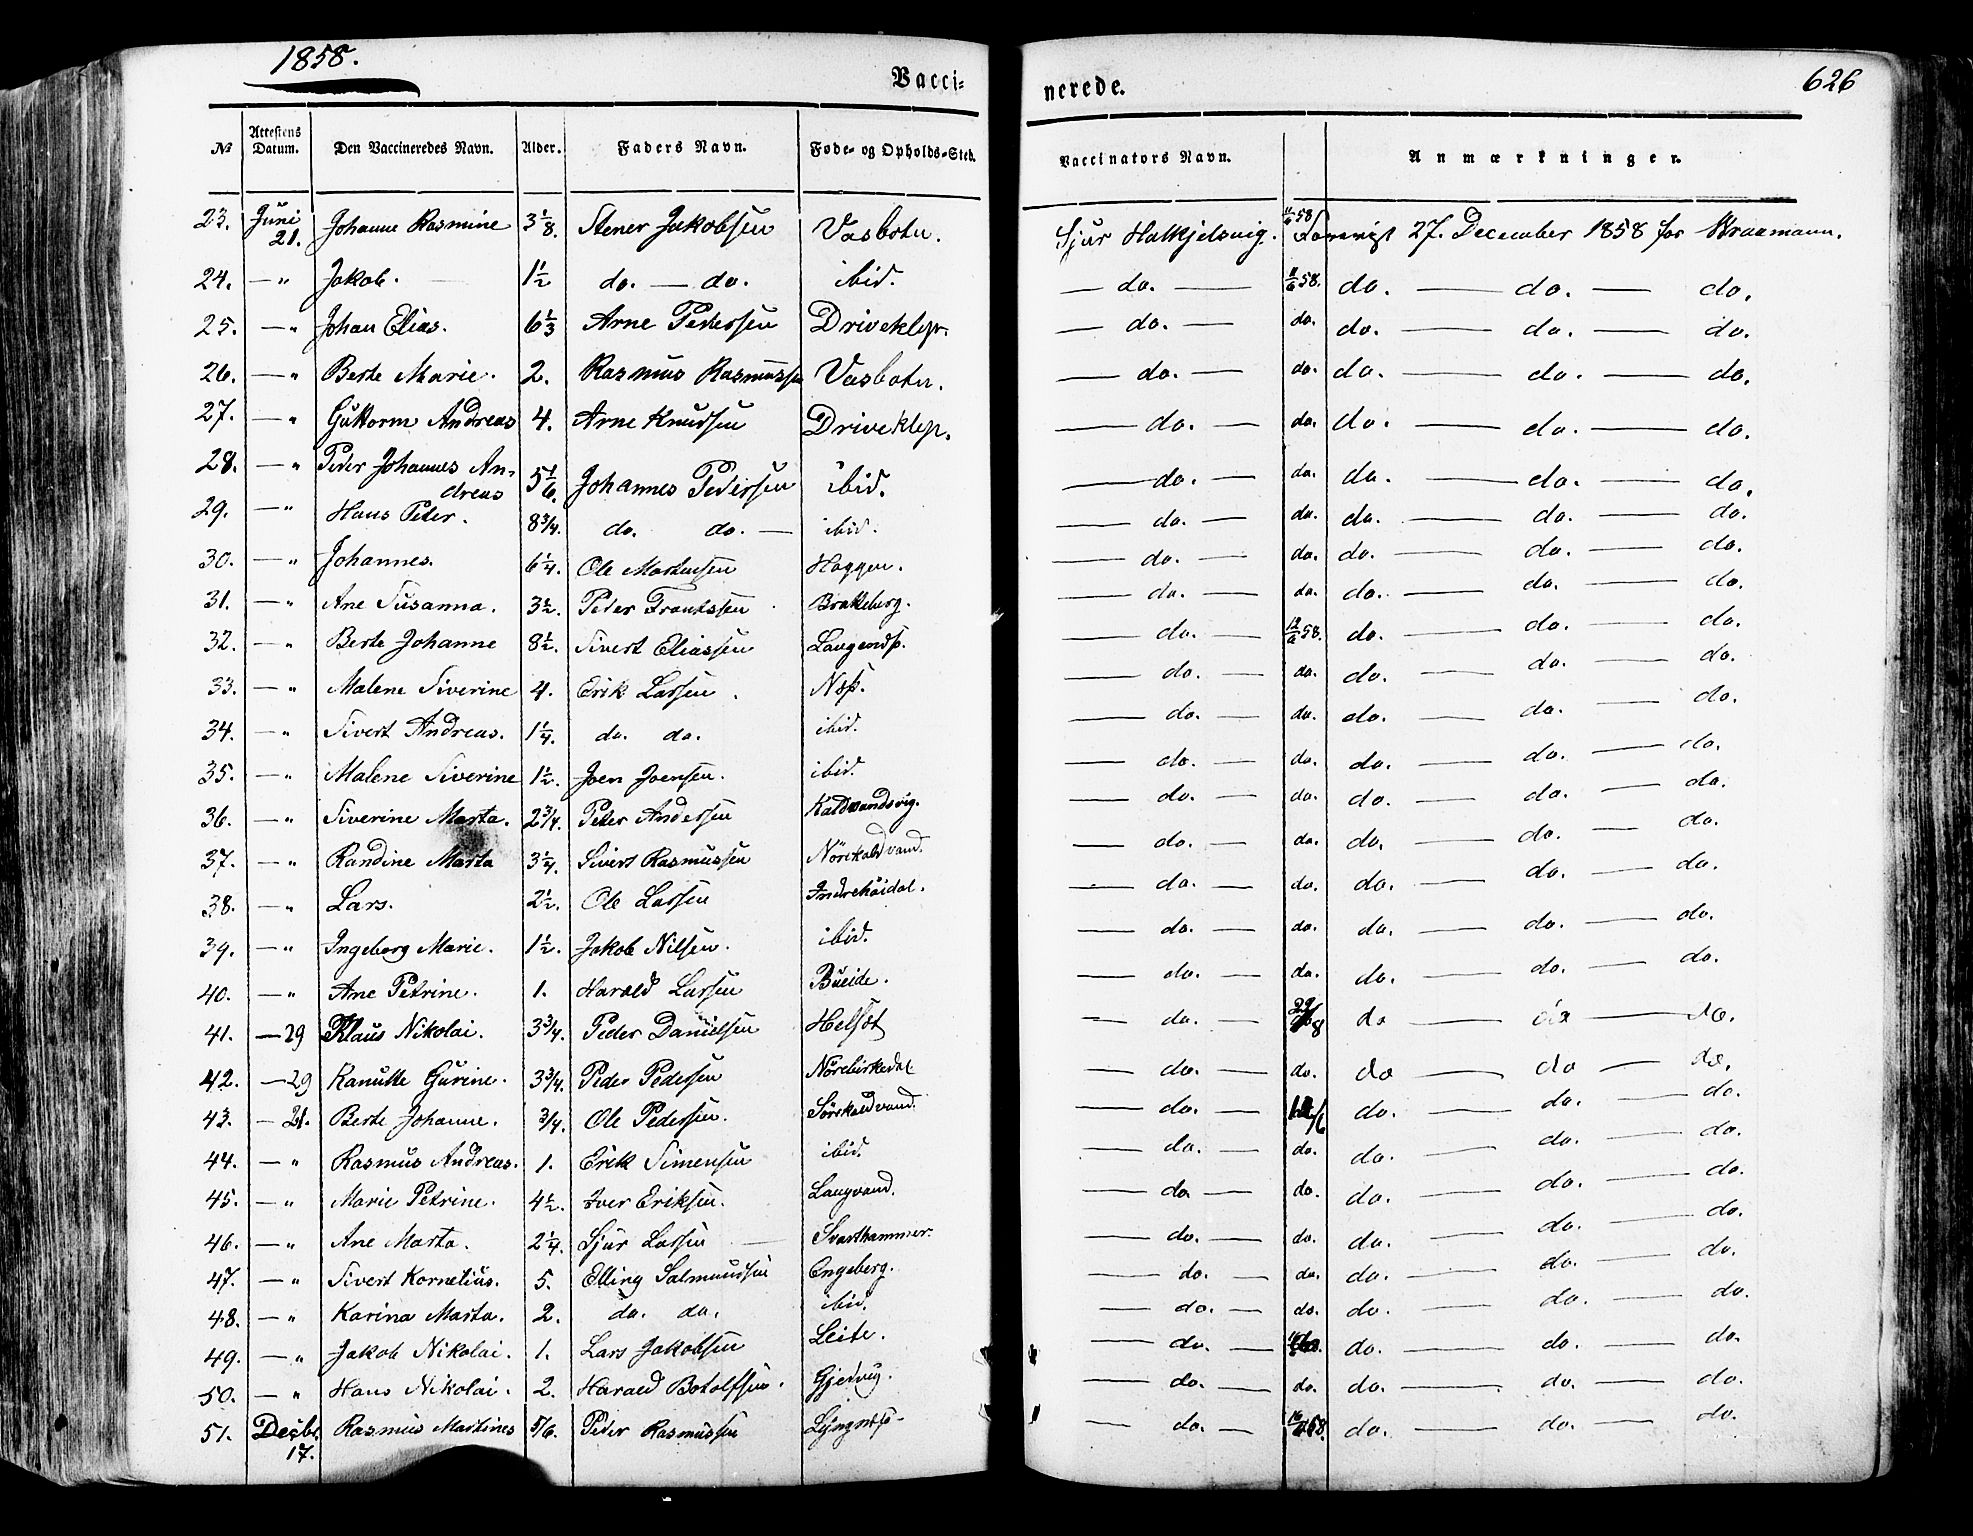 1858.
626
Vacci-
nerede.
No Attestens Datum. Den Vaccineredes Navn. Alder. Faders Navn. Føde- og Opholds-Sted. Vaccinators Navn. Anmærkninger.
23. Juni 21. Johanne Rasmine 3 1/8. Stener Jakobsen Vasbotn. Sjur Halkjelsvig. 11/6 58 27. December 1858 for
24. — " Jakob. 1 1/2 do. — do. ibid. — do. — 11/6 58. do. — do. — do.
25. — " Johan Elias. 6 1/3 Arne Pedersen Driveklep. — do. — do. do. — do. — do.
26. — " Berte Marie. 2. Rasmus Rasmussen Vasbotn. — do. — do. do. — do. — do.
27. — " Guttorm Andreas 4. Arne Knudsen Driveklep. — do. — do. do. — do. — do.
28. — " Peder Johannes An-
dreas 5 1/6. Johannes Pedersen ibid. — do. — do. do. — do. — do.
29. — " Hans Peter. 8 3/4. do. do. — ibid. — do. — do. do. — do. — do.
30. — " Johannes. 6 1/4. Ole Martensen Haggen. — do. — do. do. — do. — do.
31. — " Ane Susanna. 3 1/2. Peder Frantssen Brakeberg. — do. — do. do. — do. — do.
32. — " Berte Johanne 8 1/2. Sivert Eliassen Langenæs. — do. — 12/6 58. do. — do. — do.
33. — " Malene Siverine 4. Erik Larsen. Næs. — do. — do. do. — do. — do.
34. — " Sivert Andreas. 1 1/4. do. do. ibid. — do. — do. do. — do. — do.
35. — " Malene Siverine 1 1/2. Joen Joensen. ibid. — do. — do. do. — do. — do.
36. — " Siverine Marta. 2 3/4. Peter Andersen Kaldvandsvig. — do. — do. do. — do. — do.
37. — " Randine Marta 3 1/4. Sivert Rasmussen Nörekaldvand. — do. — do. do. — do. — do.
38. — " Lars. 2 1/2. Ole Larsen Indrehöidal. — do. — do. do. — do. — do.
39. — " Ingeborg Marie. 1 1/2. Jakob Nilsen. ibid. — do. — do. do. — do. — do.
40. — " Ane Petrine. 1. Harald Larsen Bueide. — do. — do. do. — do. — do.
41. — 29 Klaus Nikolai. 3 3/4. Peder Danielsen Helsæt — do. — do — do — do.
42. — 29 Ranutte Gurine. 3 3/4. Peder Pedersen Nörebirkedal. — do. — do. do — do — do.
43. — 21. Berte Johanne. 3/4. Ole Pedersen. Sörekaldvand. — do. — do. — do. — do.
44. — " Rasmus Andreas. 1. Erik Simensen ibid. — do. — do. do. — do. — do.
45. — " Marie Petrine. 4 1/2. Iver Eriksen. Langvand. — do — do. do. — do. — do.
46. — " Ane Marta. 2 1/4. Sjur Larsen — Svarthammer. — do. — do. do. — do. — do.
47. — " Sivert Kornelius. 5. Elling Salmundsen Engeberg. — do. — do. do. — do. — do.
48. — " Karina Marta. 2. do. do. ibid. — do. — do. do. — do. — do.
49. — " Jakob Nikolai. 1. Lars Jakobsen Leite. — do. — do. — do. — do.
50. — " Hans Nikolai. 2. Harald Botolfsen. Gjervig. — do. — do. do. — do. — do.
51. Decbr. 17. Rasmus Martines 5/6. Peder Rasmussen — do. — do. — do. — do.